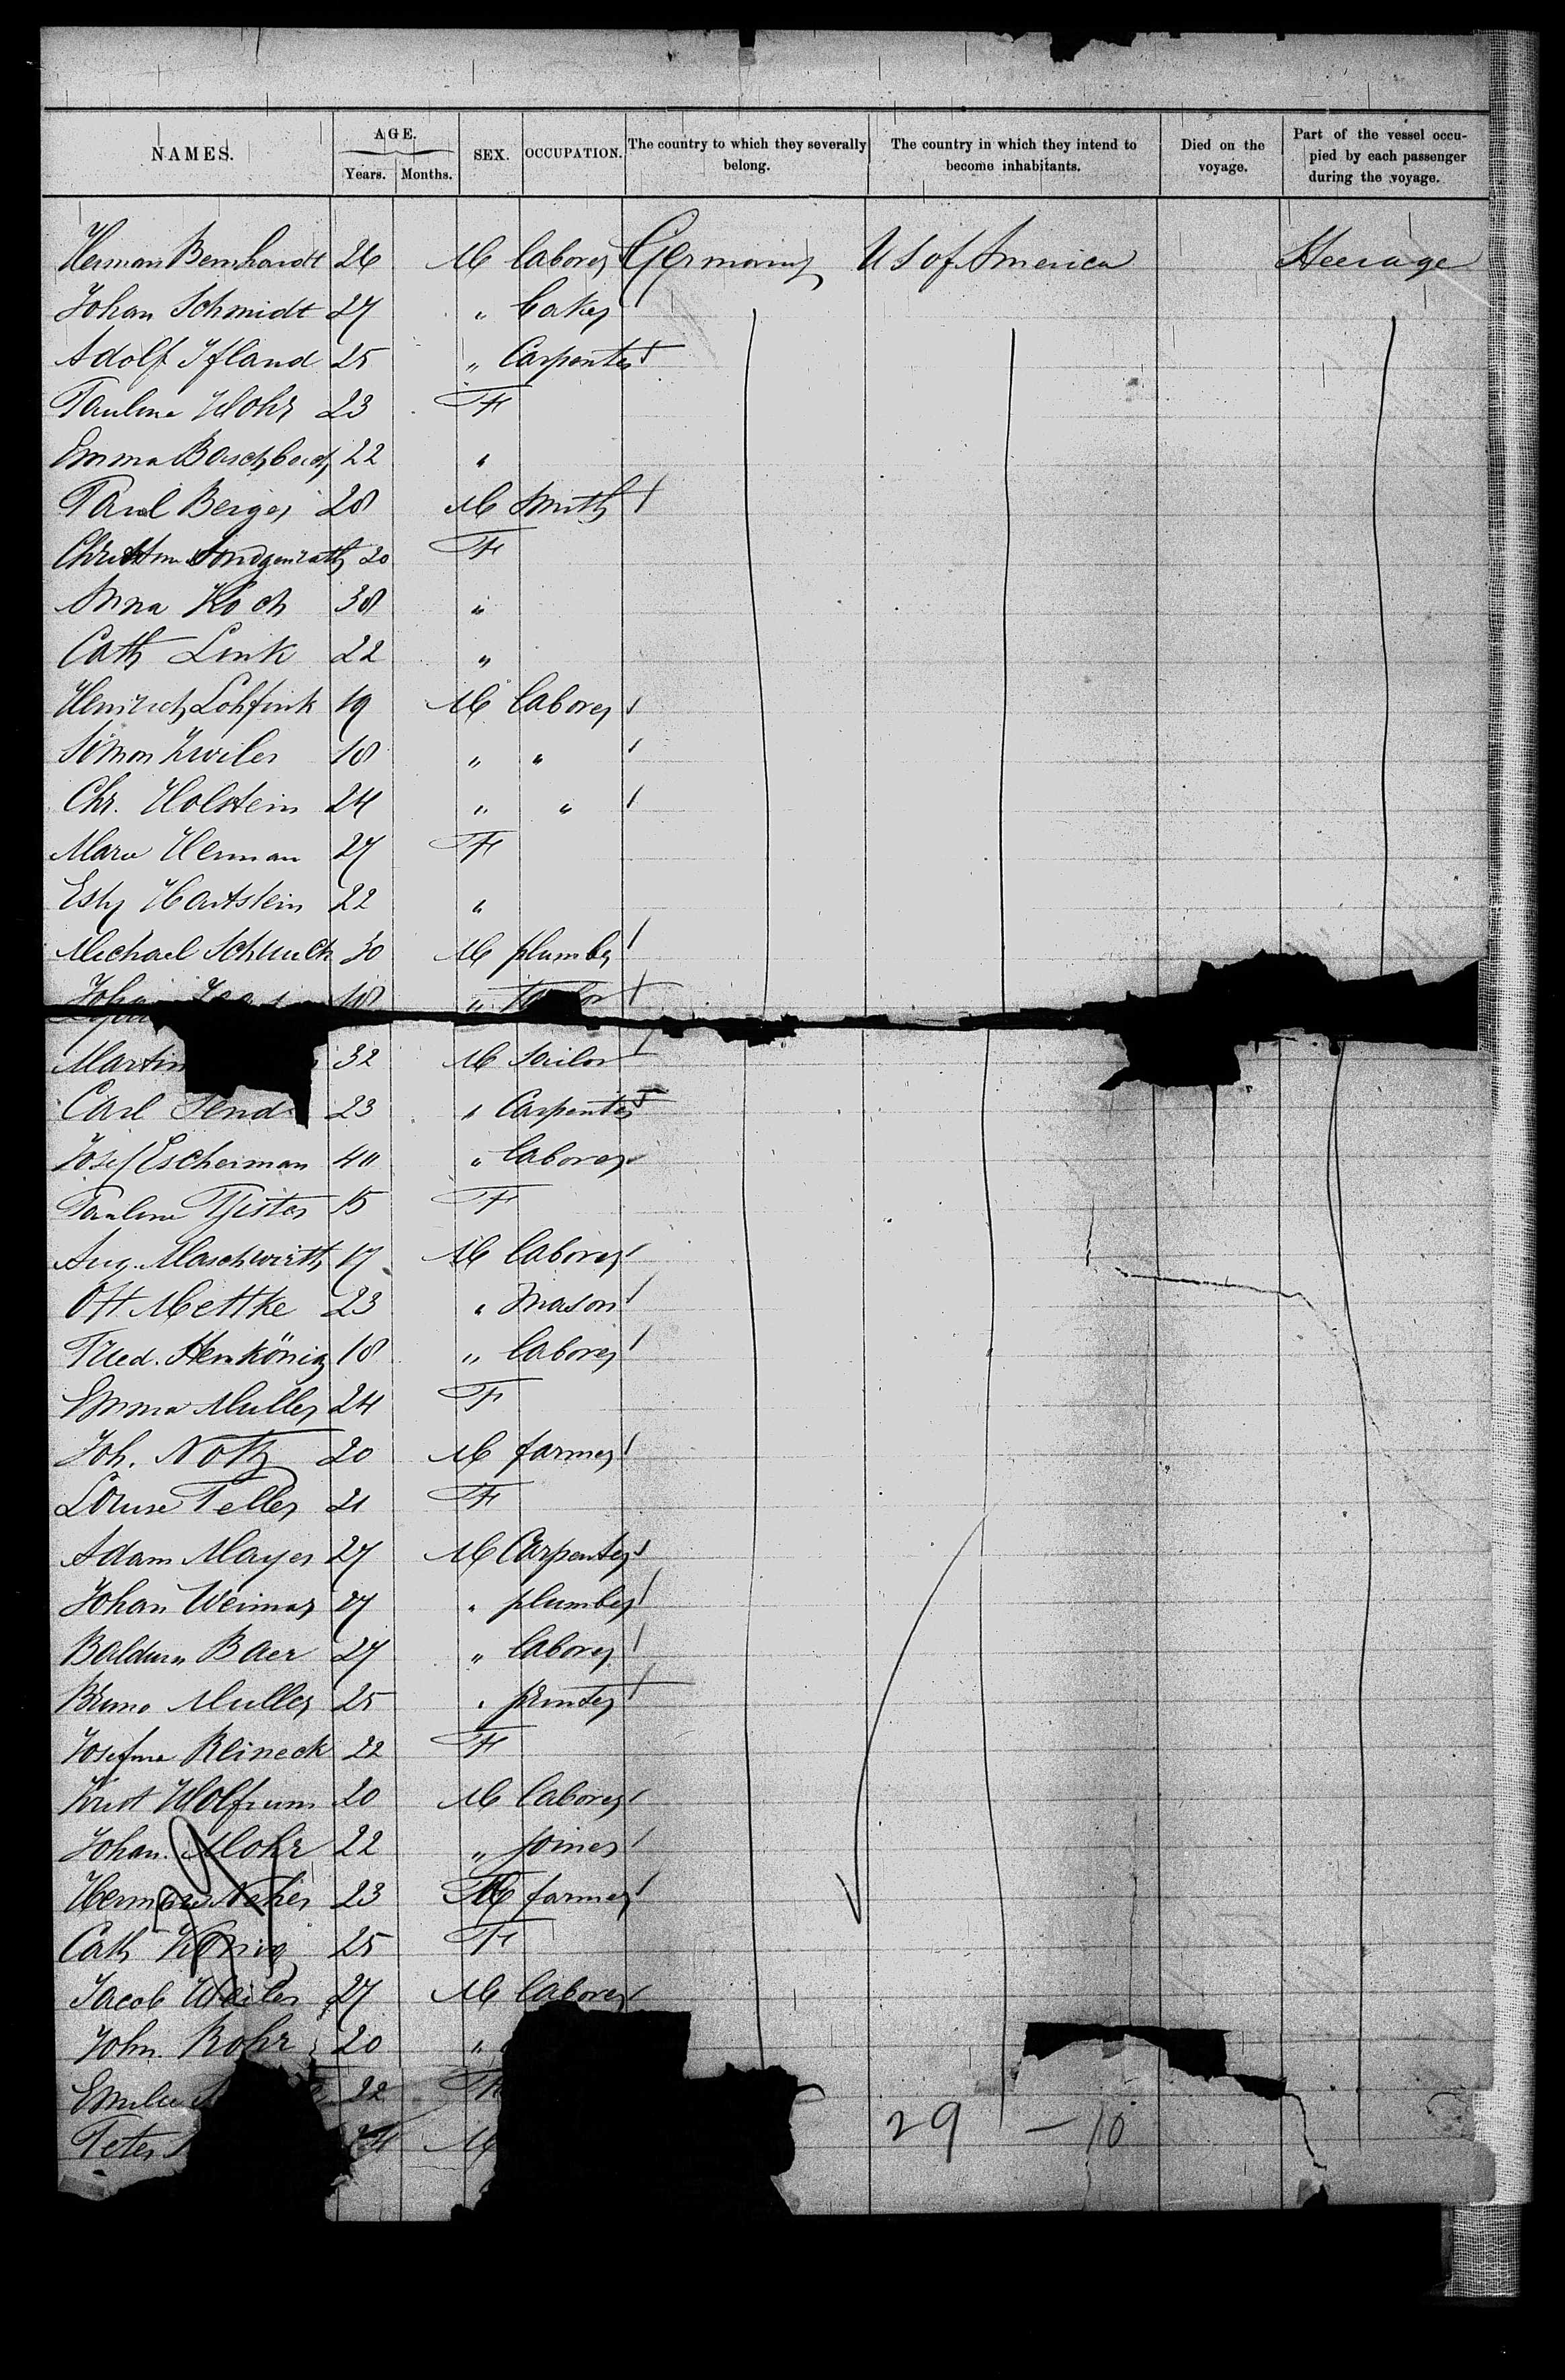 NAMES. AGE. Years. Months. SEX. OCCUPATION. The country to which they severally belong. The country in which they intend to become inhabitants. Died on the voyage. Part of the vessel occupied by each passenger during the voyage.
Herman Bernhardt 26 M laborer Germany U S of America Steerage
Johan Schmidt 27 " baker
Adolf Ifland 25 " Carpenter
Pauline Mohr 23 F
Emma 22 "
Paul Berger 28 M Smith
20 F
Anna Koch 38 "
Cath Link 22 "
Heinrich Lohfink 19 M laborer
Simon 18 " "
Chr. Holstein 24 " "
Marie Herman 27 F
Hartstein 22 "
Michael 30 M plumber
Johan 18 " Tailor
Martin 32 M Sailor
Carl 23 " Carpenter
Josef Escherman 40 " laborer
Pauline 15 F
Aug. Maschwirth 17 M laborer
Ott Mettke 23 " Mason
Fried. Henkönig 18 " laborer
Emma Muller 24 F
Joh. Notz 20 M farmer
Louise Feller 21 F
Adam Mayer 27 M Carpenter
Johan Weimar 27 " plumber
Balduin Baer 27 " laborer
Bruno Muller 25 " printer
Josefine Reineck 22 F
Wolfrum 20 M laborer
Johan. Mohr 22 " joiner
Herman Neher 23 M farmer
Cath König 25 F
Jacob Weiler 27 M laborer
John. Rohr 20 "
Emilie 22 F
Peter M
29 – 10